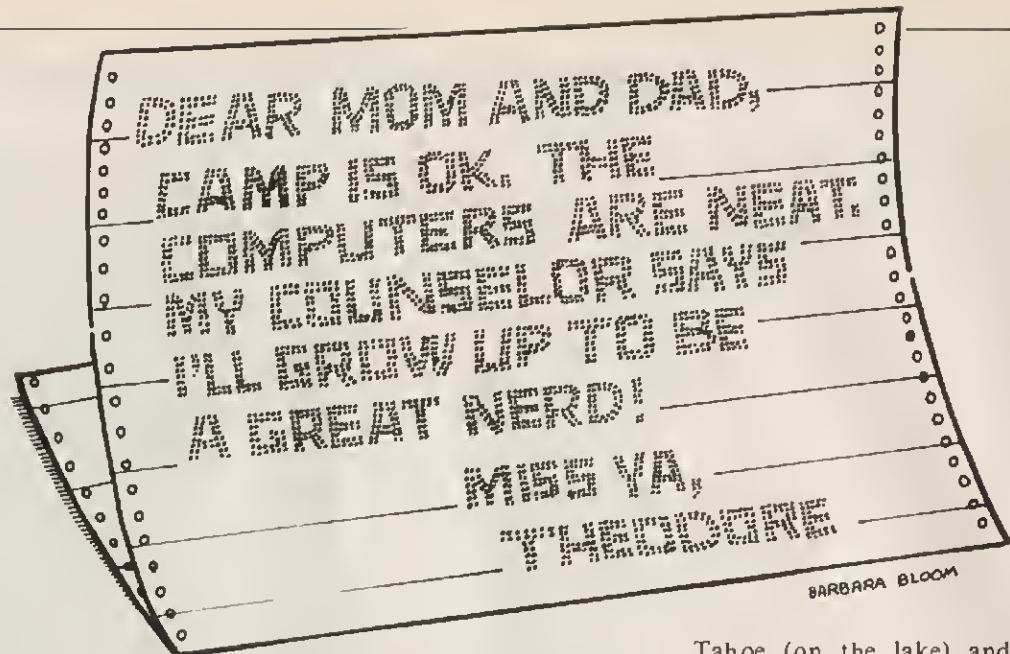 DEAR MOM AND DAD,
CAMP IS OK. THE
COMPUTERS ARE NEAT.
MY COUNSELOR SAYS
I'LL GROW UP TO BE
A GREAT NERD!
MISS YA,
THEODORE
BARBARA BLOOM
Tahoe (on the lake) and